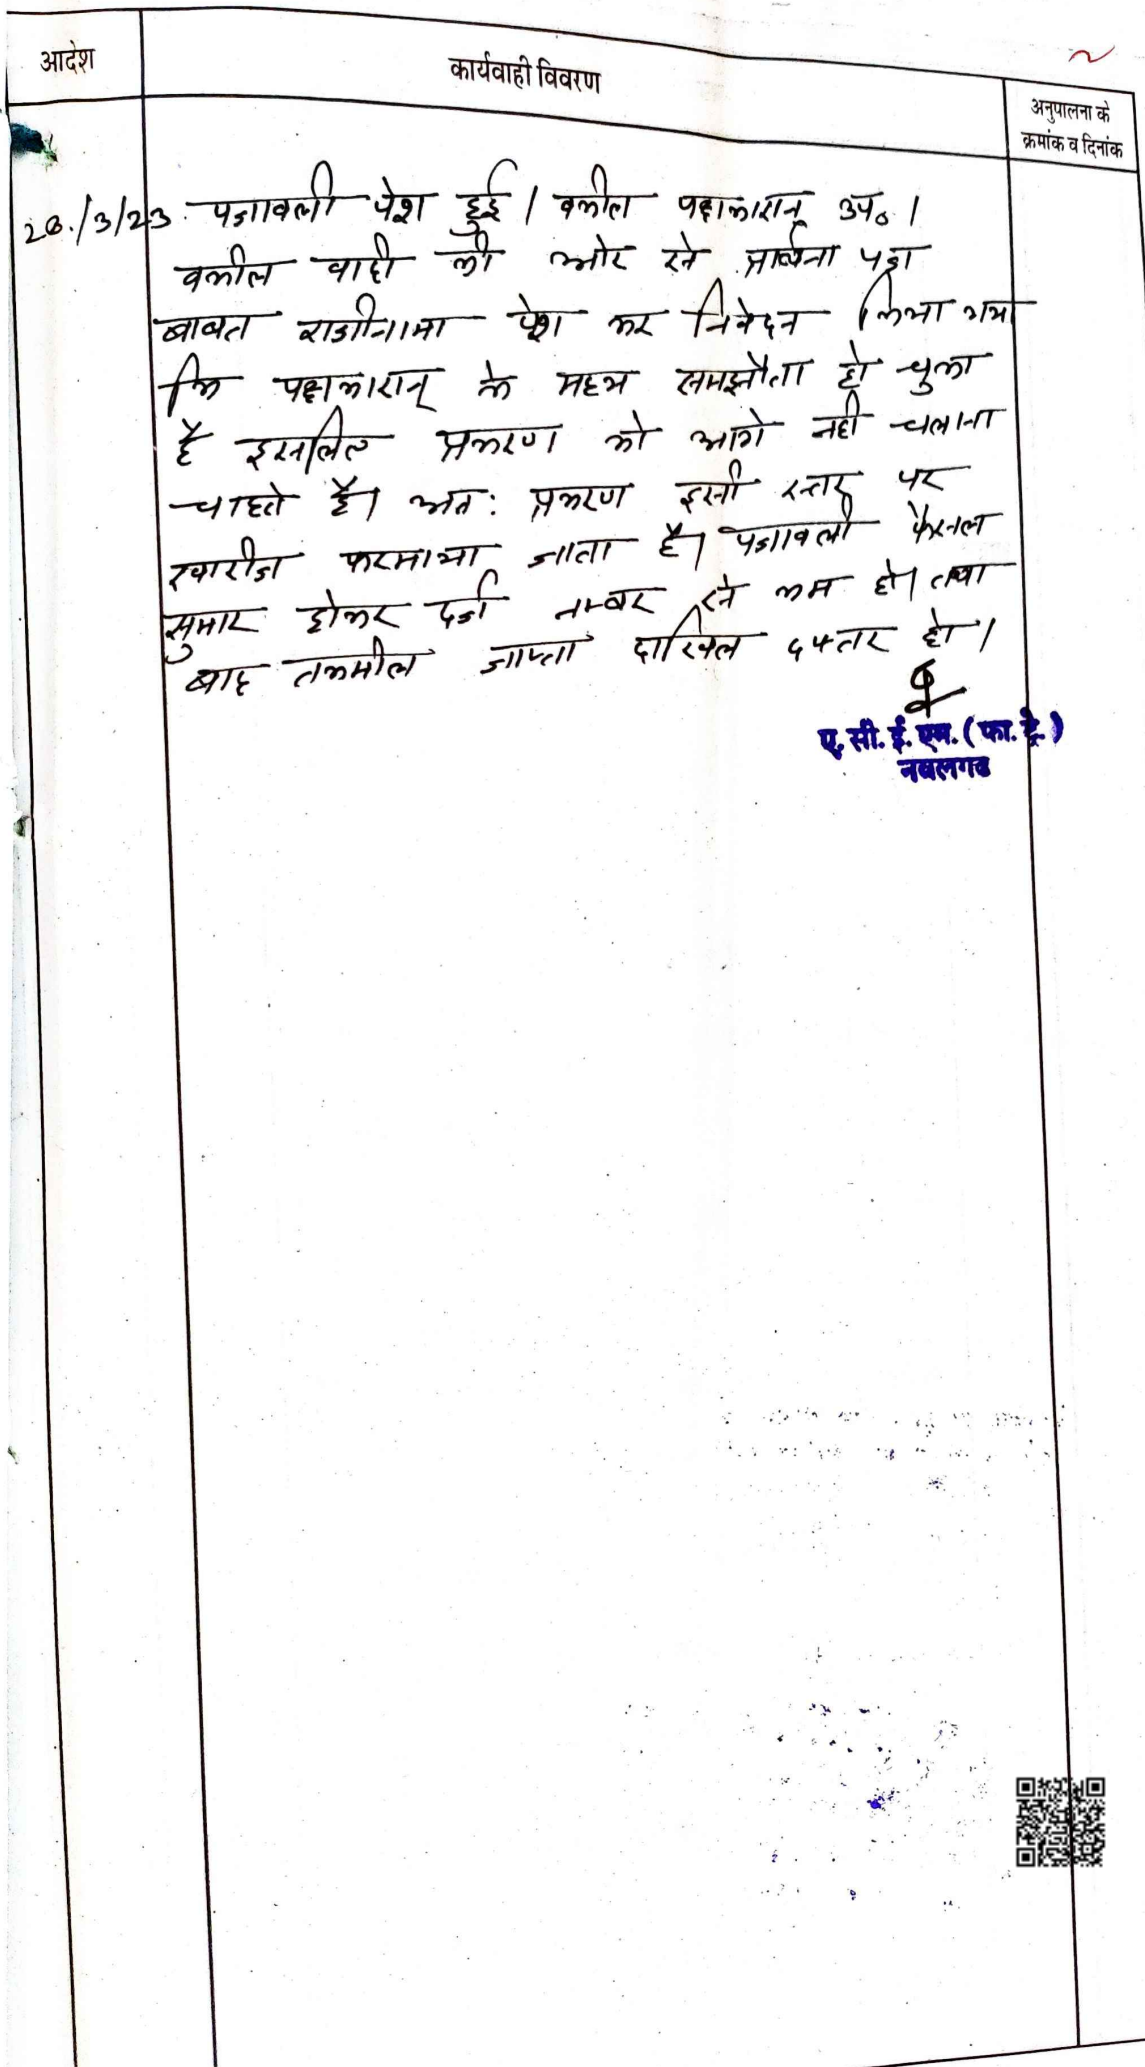 आदेश
कार्यवाही विवरण
अनुपालना के
क्रमांक व दिनांक
पत्रावली पेश हुई। वकील पक्षकारान् उप०।
वकील वादी की ओर से प्रार्थना पत्र
बाबत राजीनामा पेश कर निवेदन किया गया
कि पक्षकारान् के मध्य समझौता हो चुका
है इसलिए प्रकरण को आगे नही चलाना
चाहते है। अत: प्रकरण इसी स्तर पर
खारीज फरमाया जाता है। पत्रावली फैसल
सुमार होकर दर्ज नम्बर से कम हो। तथा
बाद तकमील जाप्ता दाखिल दफ्तर हो।
ए. सी. ई. एम. (फा. ट्रे.)
नवलगढ